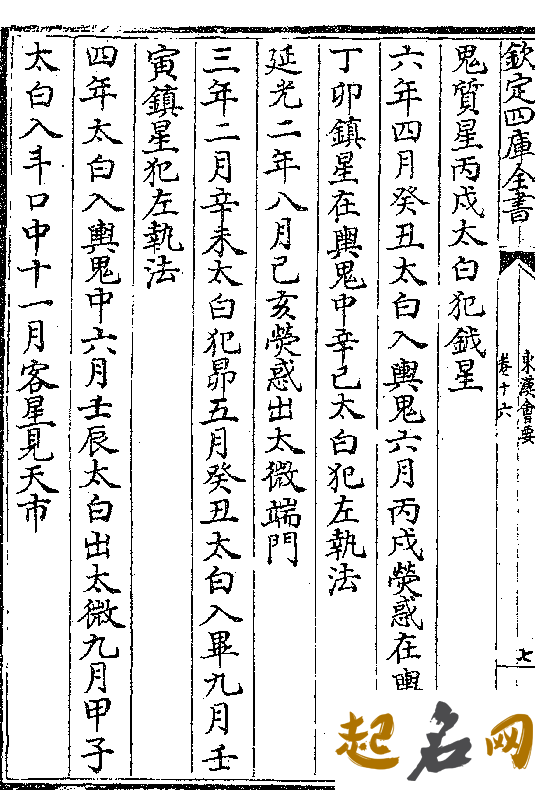 欽定四庫全書
東漢會要
卷十六
七
鬼質星丙戌太白犯鉞星
六年四月癸丑太白入輿鬼六月丙戌熒惑在輿
丁卯鎮星在輿鬼中辛己太白犯左執法
延光二年八月己亥熒惑出太微端門
三年二月辛未太白犯昴五月癸丑太白入畢九月壬
寅鎮星犯左執法
四年太白入輿鬼中六月壬辰太白出太微九月甲子
太白入斗口中十一月客星見天市
起名网